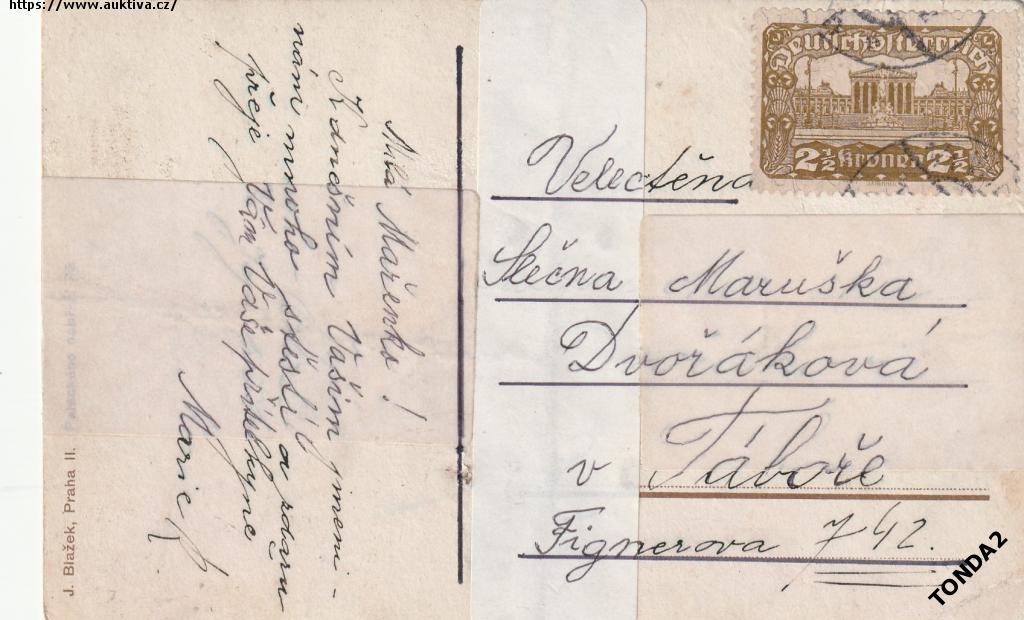 https://www.auktiva.cz/
Milá Mařenko!
K dnešním Vašim jmeni-
nám mnoho štěstí a zdaru
přeje Vám Vaše přítelkyně
Marie
J. Blažek, Praha II.
Deutschösterreich
2½ Kronen 2½
Velectěná
Slečna Maruška
Dvořáková
v Táboře
Fignerova 742.
TONDA2